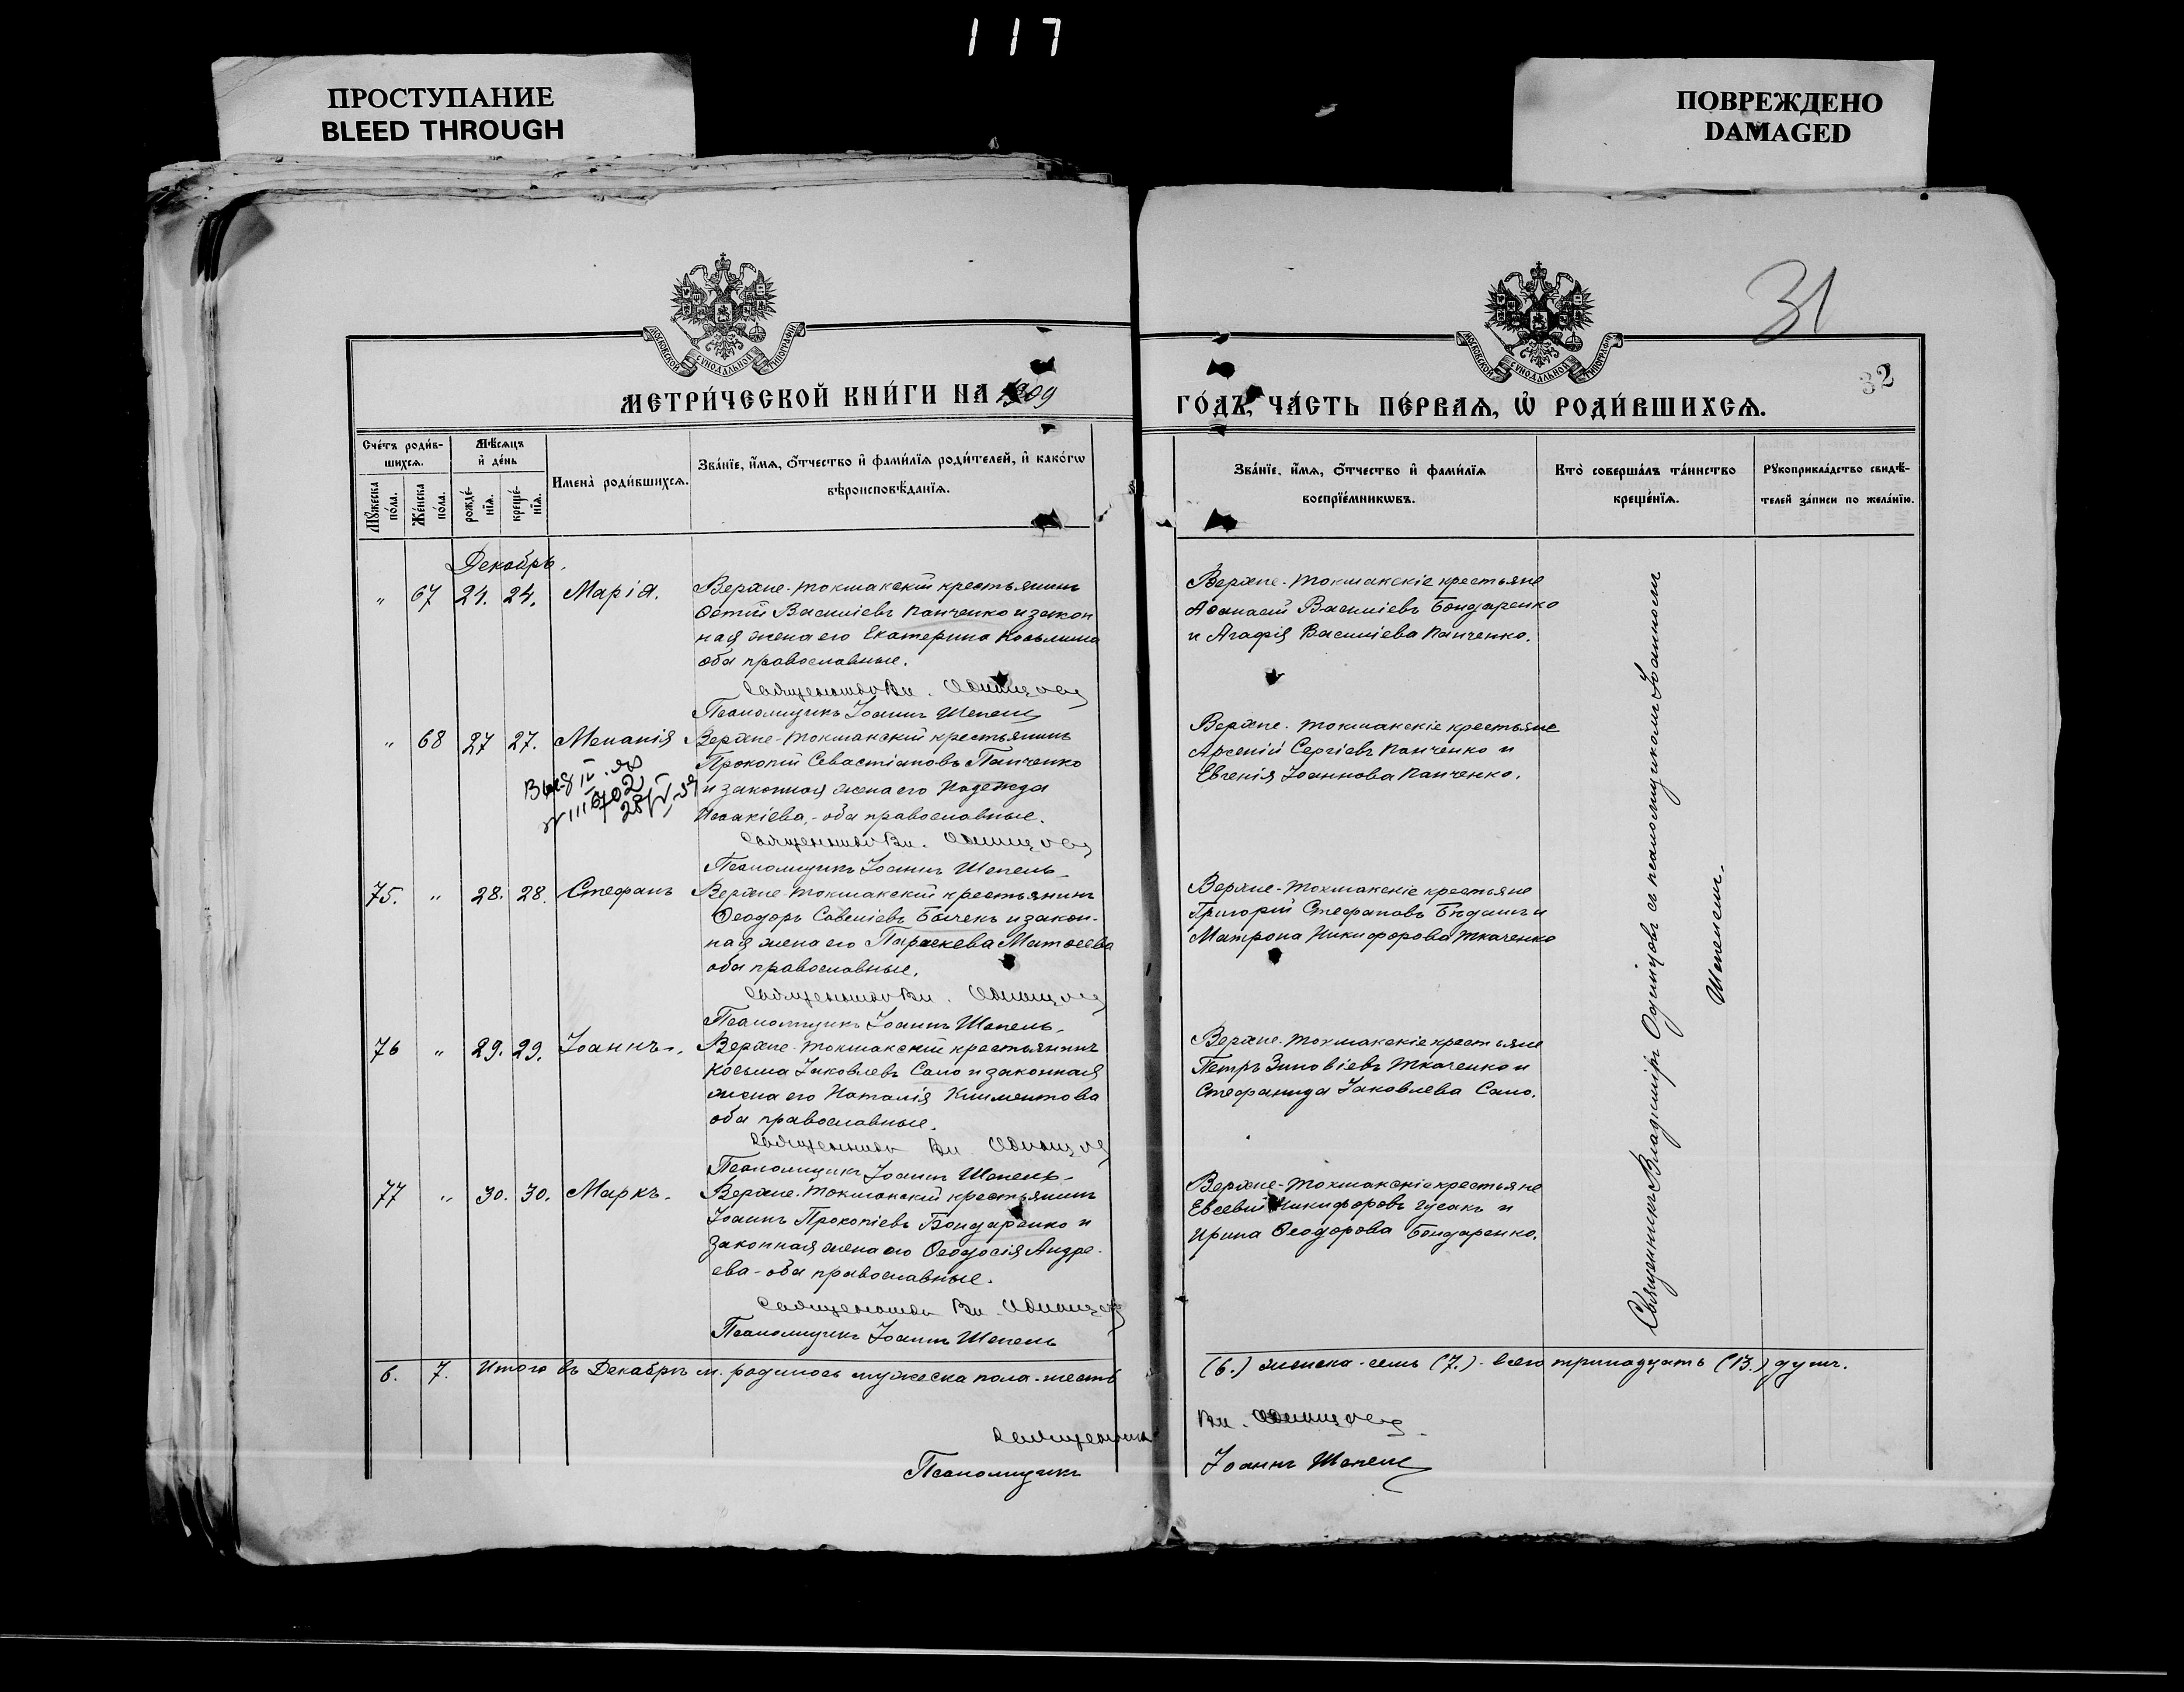 117
ПРОСТУПАНИЕ
BLEED THROUGH
ПОВРЕЖДЕНО
DAMAGED
31
32
МОСКОВСКОЙ СУНОДАЛЬНОЙ ТИПОГРАФІИ
МОСКОВСКОЙ СУНОДАЛЬНОЙ ТИПОГРАФІИ
МЕТРИ́ЧЕСКОЙ КНИ́ГИ НА 1909
ГО́ДЪ, ЧА́СТЬ ПЕ́РВАѦ, Ѡ҆ РОДИ́ВШИХСѦ.
Сче́тъ роди́в-
шихсѧ.
Мꙋ́жеска
по́ла.
Же́нска
по́ла.
Мѣ́сѧцъ
и҆ де́нь
рожде́-
нїѧ.
креще́-
нїѧ.
Имена̀ роди́вшихсѧ.
Зва́нїе, и҆́мѧ, ѻ҆́тчество и҆ фами́лїѧ роди́телей, и҆ како́гѡ
вѣроисповѣ́данїѧ.
Зва́нїе, и҆́мѧ, ѻ҆́тчество и҆ фами́лїѧ
воспрїе́мникѡвъ.
Кто̀ соверша́лъ та́инство
креще́нїѧ.
Рꙋкоприкла́дство свидѣ́-
телей за́писи по жела́нїю.
Декабрь.
" 67 24. 24. Марія.
Верхне-Токмакскій крестьянинъ
Фотій Василіевъ Панченко и закон
ная жена его Екатерина Косьмина
оба православные.
Священникъ Вл. Одинцовъ
Псаломщикъ Іоаннъ Шепель
Верхне-Токмакскіе крестьяне
Аѳанасій Василіевъ Бондаренко
и Агафія Василіева Панченко.
" 68 27 27. Меланія
Верхне-Токмакскій крестьянинъ
Прокопій Севастіановъ Панченко
и законная жена его Надежда
Исакіева, - оба православные.
Священникъ Вл. Одинцовъ
Псаломщикъ Іоаннъ Шепель
Верхне-Токмакскіе крестьяне
Арсеній Сергіевъ Панченко и
Евгенія Іоаннова Панченко.
75. " 28. 28. Стефанъ
Верхне-Токмакскій крестьянинъ
Ѳеодоръ Савеліевъ Бычекъ и закон-
ная жена его Параскева Матѳеева
оба православные.
Священникъ Вл. Одинцовъ
Псаломщикъ Іоаннъ Шепель
Верхне-Токмакскіе крестьяне
Григорій Стефановъ и
Матрона Никифорова Ткаченко
76 " 29. 29. Іоаннъ.
Верхне-Токмакскій крестьянинъ
Косьма Іаковлевъ Сало и законная
жена его Наталія Климентова
оба православные.
Священникъ Вл. Одинцовъ
Псаломщикъ Іоаннъ Шепель
Верхне-Токмакскіе крестьяне
Петръ Зиновіевъ Ткаченко и
Стефанида Іаковлева Сало.
77 " 30. 30. Маркъ.
Верхне-Токмакскій крестьянинъ
Іоаннъ Прокопіевъ Бондаренко и
законная жена его Ѳеодосія Андре-
ева - оба православные.
Священникъ Вл. Одинцовъ
Псаломщикъ Іоаннъ Шепель
Верхне-Токмакскіе крестьяне
Евсевій Никифоровъ Гусакъ и
Ирина Ѳеодорова Бондаренко.
Священникъ Владиміръ Одинцовъ съ псаломщикомъ Іоанномъ
Шепелемъ.
6. 7. Итого въ Декабрѣ м. родилось мужеска пола - шесть
(6.) женска - семь (7.) - всего тринадцать (13.) душъ.
Священникъ Вл. Одинцовъ
Псаломщикъ Іоаннъ Шепель